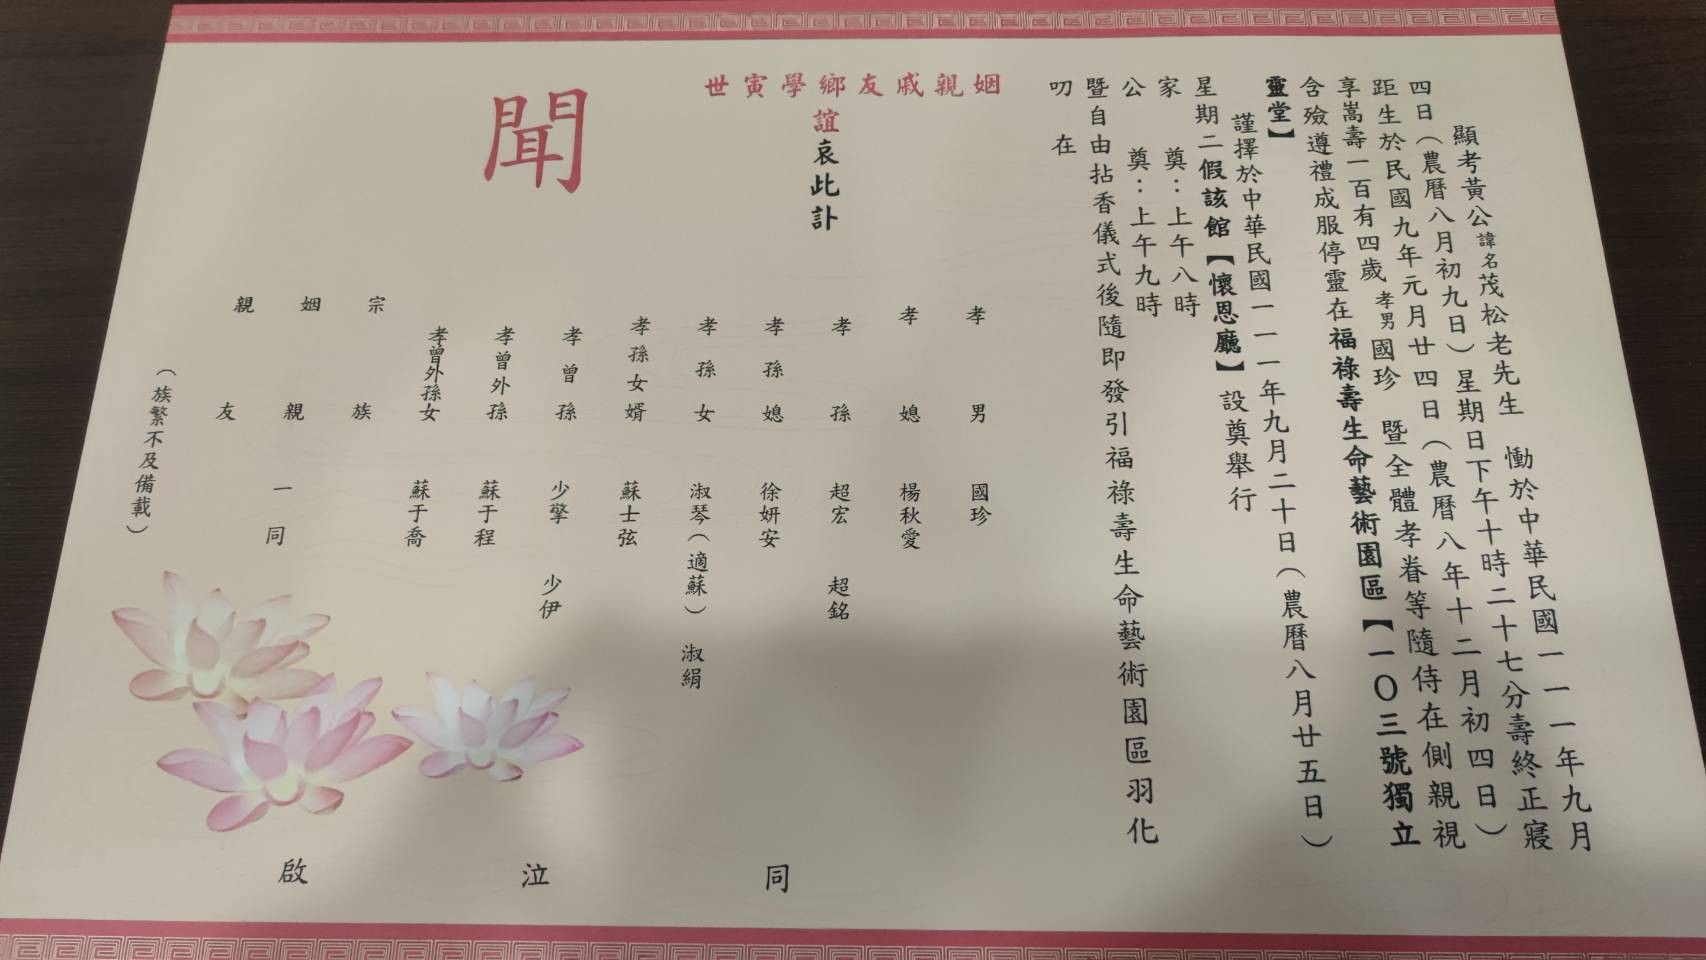 顯考黃公諱名茂松老先生　慟於中華民國一一一年九月
四日（農曆八月初九日）星期日下午十時二十七分壽終正寢
距生於民國九年元月廿四日（農曆八年十二月初四日）
享嵩壽一百有四歲　孝男國珍　暨全體孝眷等隨侍在側親視
含殮遵禮成服停靈在福祿壽生命藝術園區【一〇三號獨立
靈堂】
謹擇於中華民國一一一年九月二十日（農曆八月廿五日）
星期二假該館【懷恩廳】設奠舉行
家　奠：上午八時
公　奠：上午九時
暨自由拈香儀式後隨即發引福祿壽生命藝術園區羽化
叨　在
姻親戚友鄉學寅世
誼哀此訃
聞
孝男　國珍
孝媳　楊秋愛
孝孫　超宏　超銘
孝孫媳　徐妍安
孝孫女　淑琴（適蘇）　淑絹
孝孫女婿　蘇士弦
孝曾孫　少擎　少伊
孝曾外孫　蘇于程
孝曾外孫女　蘇于喬
宗族
姻親　一同
親友
（族繁不及備載）
同泣啟